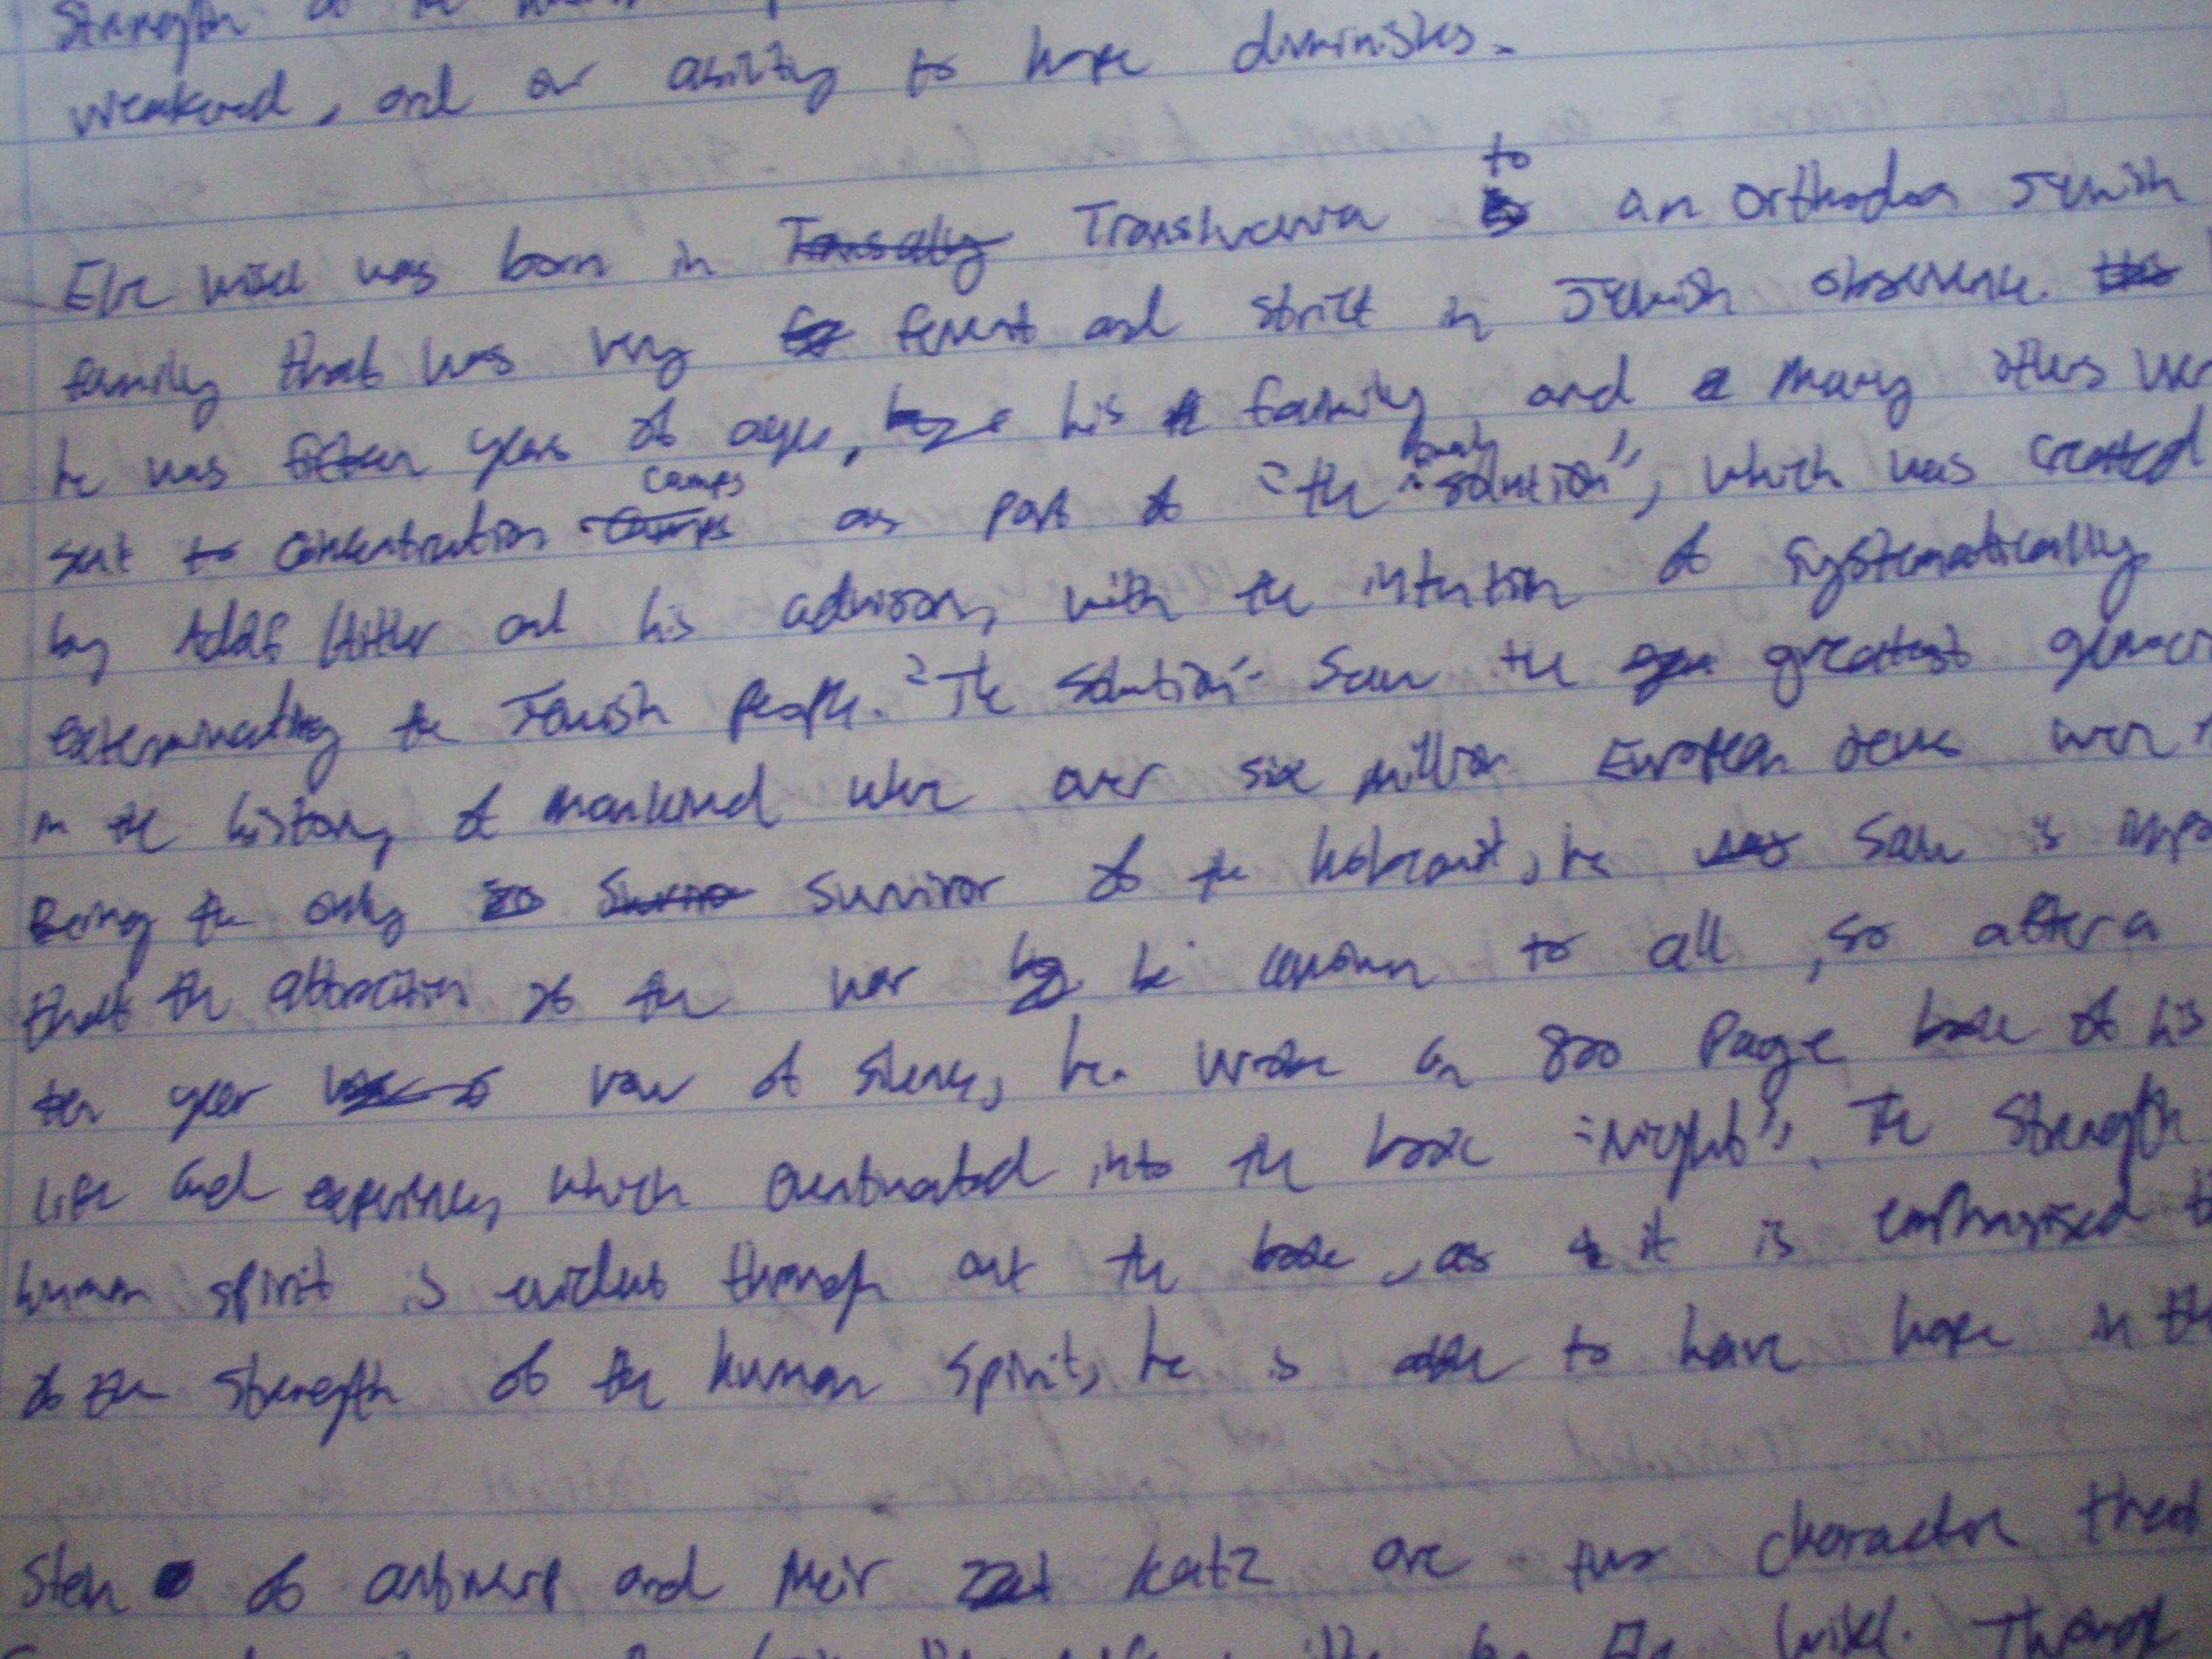 Strength of the
weakened, and our ability to hope diminishes.
to
Elie Wiesel was born in Transalvy Translvania an orthodox Jewish
family that was very fervent and strict in Jewish observence.
he was fifteen years of age, his family and many others wer
camps
sent to concentration camps as part of "the "solution", which was created
by Adolf Hitler and his advisors, with the intention of systematically
exterminating the Jewish people. "The solution" saw the greatest genoci
in the history of mankind where over six million European Jews were
Being the only survivor of the holocaust, he was saw is impo
that the attrocities of the war be known to all, so after a
ten year vow of silence, he wrote an 800 page book of his
life and experiences, which eventuated into the book "Night". The strength
human spirit is evident through out the book, as it is emphasised th
of the strength of the human spirit, he is able to have hope in th
Stein of antwerp and Meir Katz are two character that
by Elie Wiesel. Through